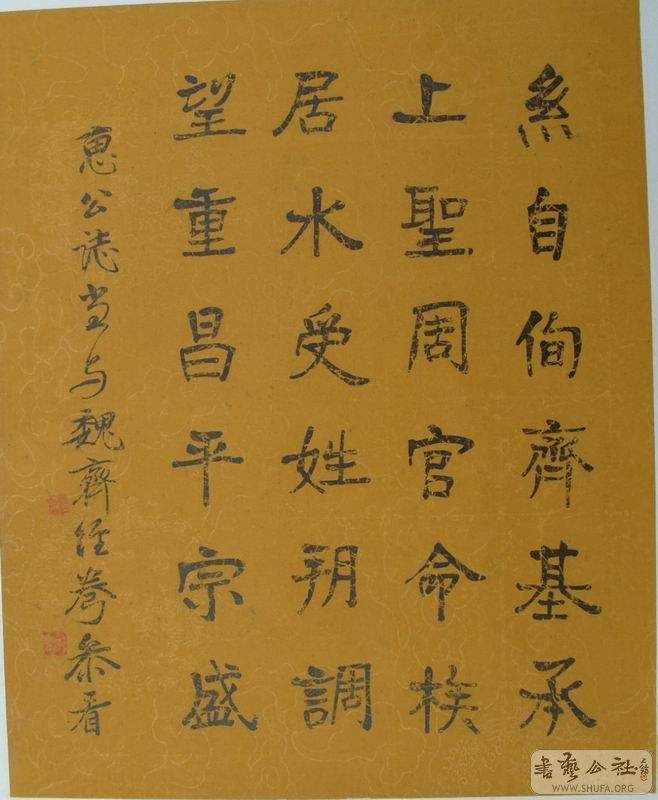 系自侚齊基承
上聖周官命族
居水受姓朔調
望重昌平宗盛
惠公誌当与魏齊經卷参看
書藝公社
WWW.SHUFA.ORG